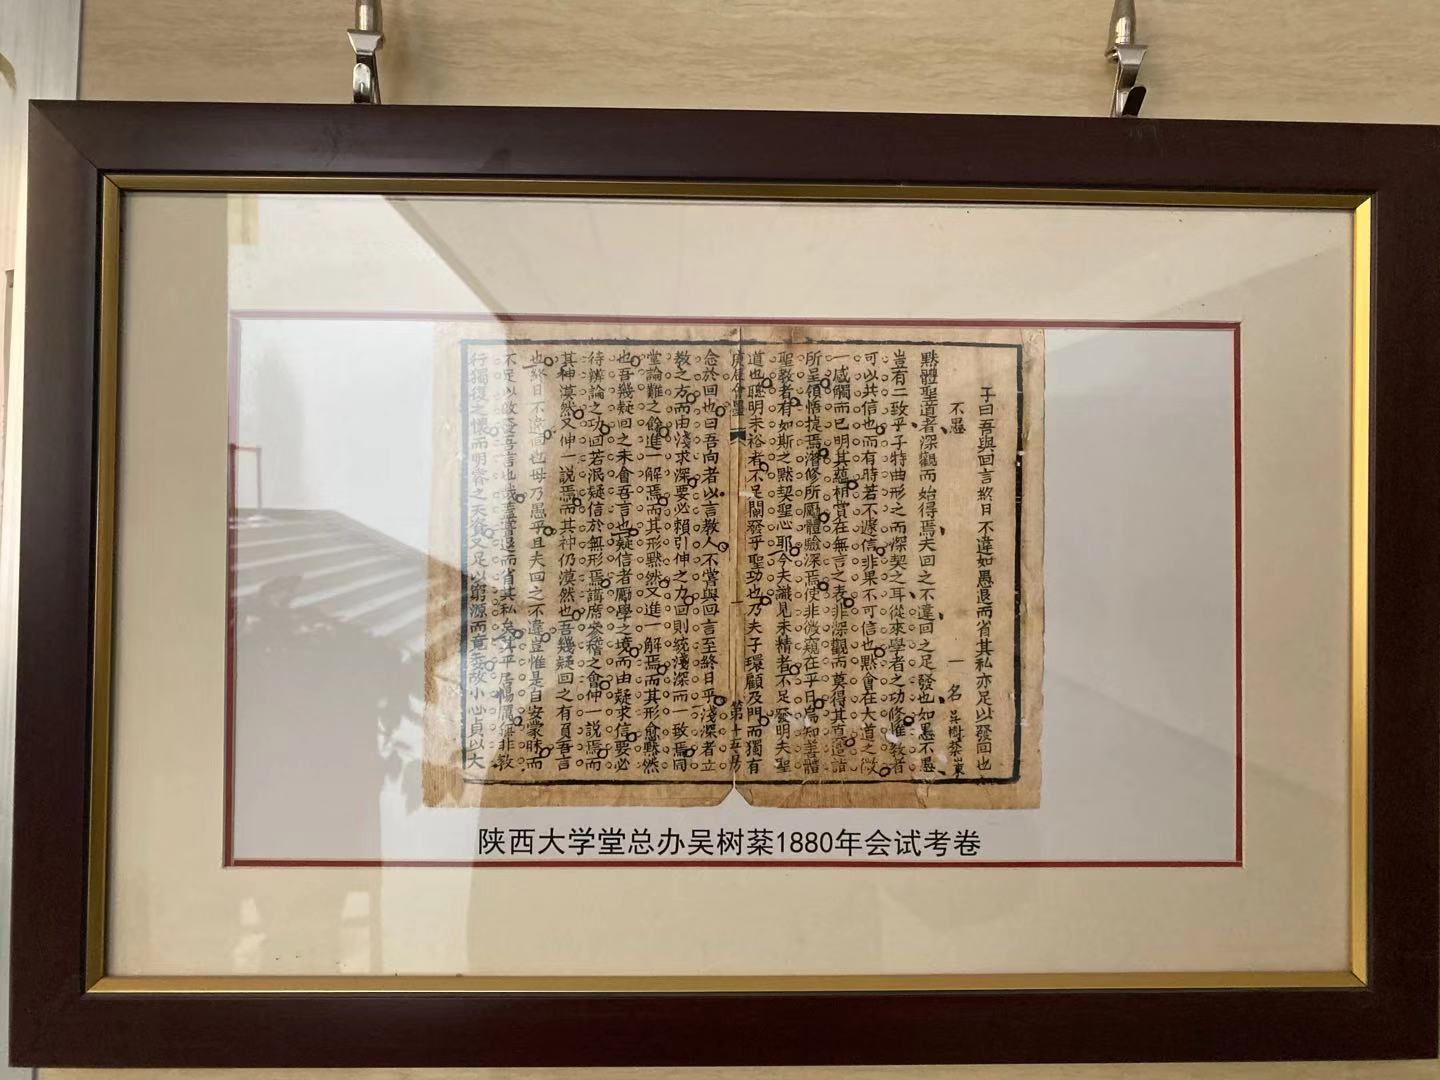 子曰吾與回言終日不違如愚退而省其私亦足以發回也
不愚 一名 吳樹棻
默體聖道者深觀而始得焉夫回之不違回之足發也如愚不愚
豈有二致乎子特曲形之而深契之耳從來學者之功修惟教者
可以共信也而有時若不遽信非果不可信也默會在大道之微
一感觸而已明其蘊相賞在無言之表非深觀而莫得其真造詣
所呈領悟捷焉潛修所厲體驗深焉使非微窺在平日烏知善體
聖教者有如斯之默契聖心耶今夫識見未精者不足發明夫聖
道也聰明未裕者不足闡發乎聖功也乃夫子環顧及門而獨有
庚辰會墨 一 第十五房
念於回也曰吾向者以言教人不嘗與回言至終日乎淺深者立
教之方而由淺求深要必賴引伸之力回則統淺深而一致焉同
堂論難之餘進一解焉而其形默然又進一解焉而其形愈默然
也吾幾疑回之未會吾言也疑信者厲學之境而由疑求信要必
待辨論之功回若泯疑信於無形焉講席參稽之會伸一說焉而
其神漠然又伸一說焉而其神仍漠然也吾幾疑回之有負吾言
也終日不違回也毋乃愚乎且夫回之不違豈惟是自安蒙昧而
不足以啟發吾言也哉蓋嘗退而省其私矣其平居惕厲無非教
行獨復之懷而明睿之天資又足以窮源而竟委故小心貞以大
陕西大学堂总办吴树棻1880年会试考卷